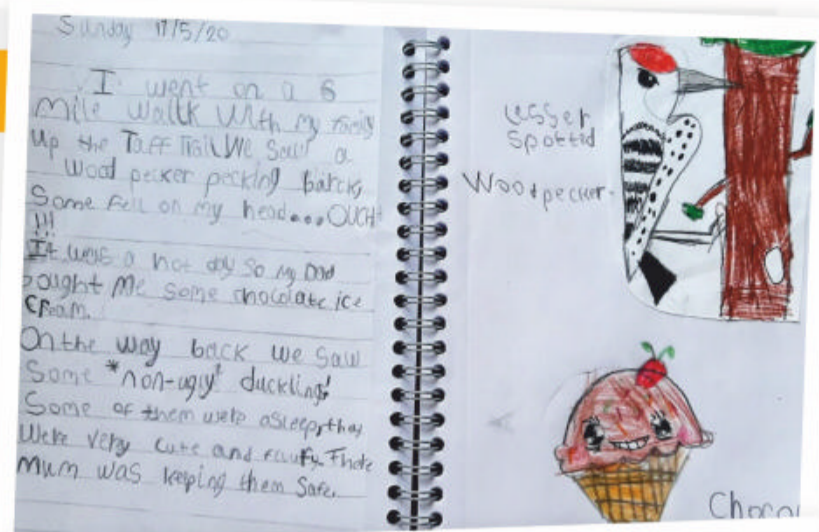 Sunday 17/5/20
I went on a 6
mile wallk with my family
up the Taff Trail We Saw a
Wood pecker pecking barck,
Some fell on my head...OUCH
!!!
It was a hot day so my Dad
bought me some chocolate ice
cream.
On the way back we saw
Some *non-ugly* ducklings!
Some of them were asleep, they
were very cute and
Mum was keeping them safe.
Lesser
Spotted
Woodpecker.
Choco